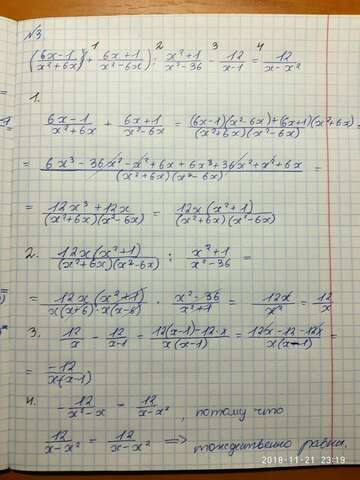 №3.
(6x-1/x²+6x + 6x+1/x²-6x) : x²+1/x²-36 - 12/x-1 = 12/x-x²
1 2 3 4
1.
6x-1/x²+6x + 6x+1/x²-6x = (6x-1)(x²-6x)+(6x+1)(x²+6x)/(x²+6x)(x²-6x) =
= 6x³-36x²-x²+6x+6x³+36x²+x²+6x/(x²+6x)(x²-6x) =
= 12x³+12x/(x²+6x)(x²-6x) = 12x(x²+1)/(x²+6x)(x²-6x)
2. 12x(x²+1)/(x²+6x)(x²-6x) : x²+1/x²-36 =
= 12x(x²+1)/x(x+6)·x(x-6) · x²-36/x²+1 = 12x/x² = 12/x
3. 12/x - 12/x-1 = 12(x-1)-12·x/x(x-1) = 12x-12-12x/x(x-1) =
= -12/x(x-1)
4. -12/x²-x = 12/x-x², потому что
12/x-x² = 12/x-x² => тождественно равны.
2018-11-21 23:19